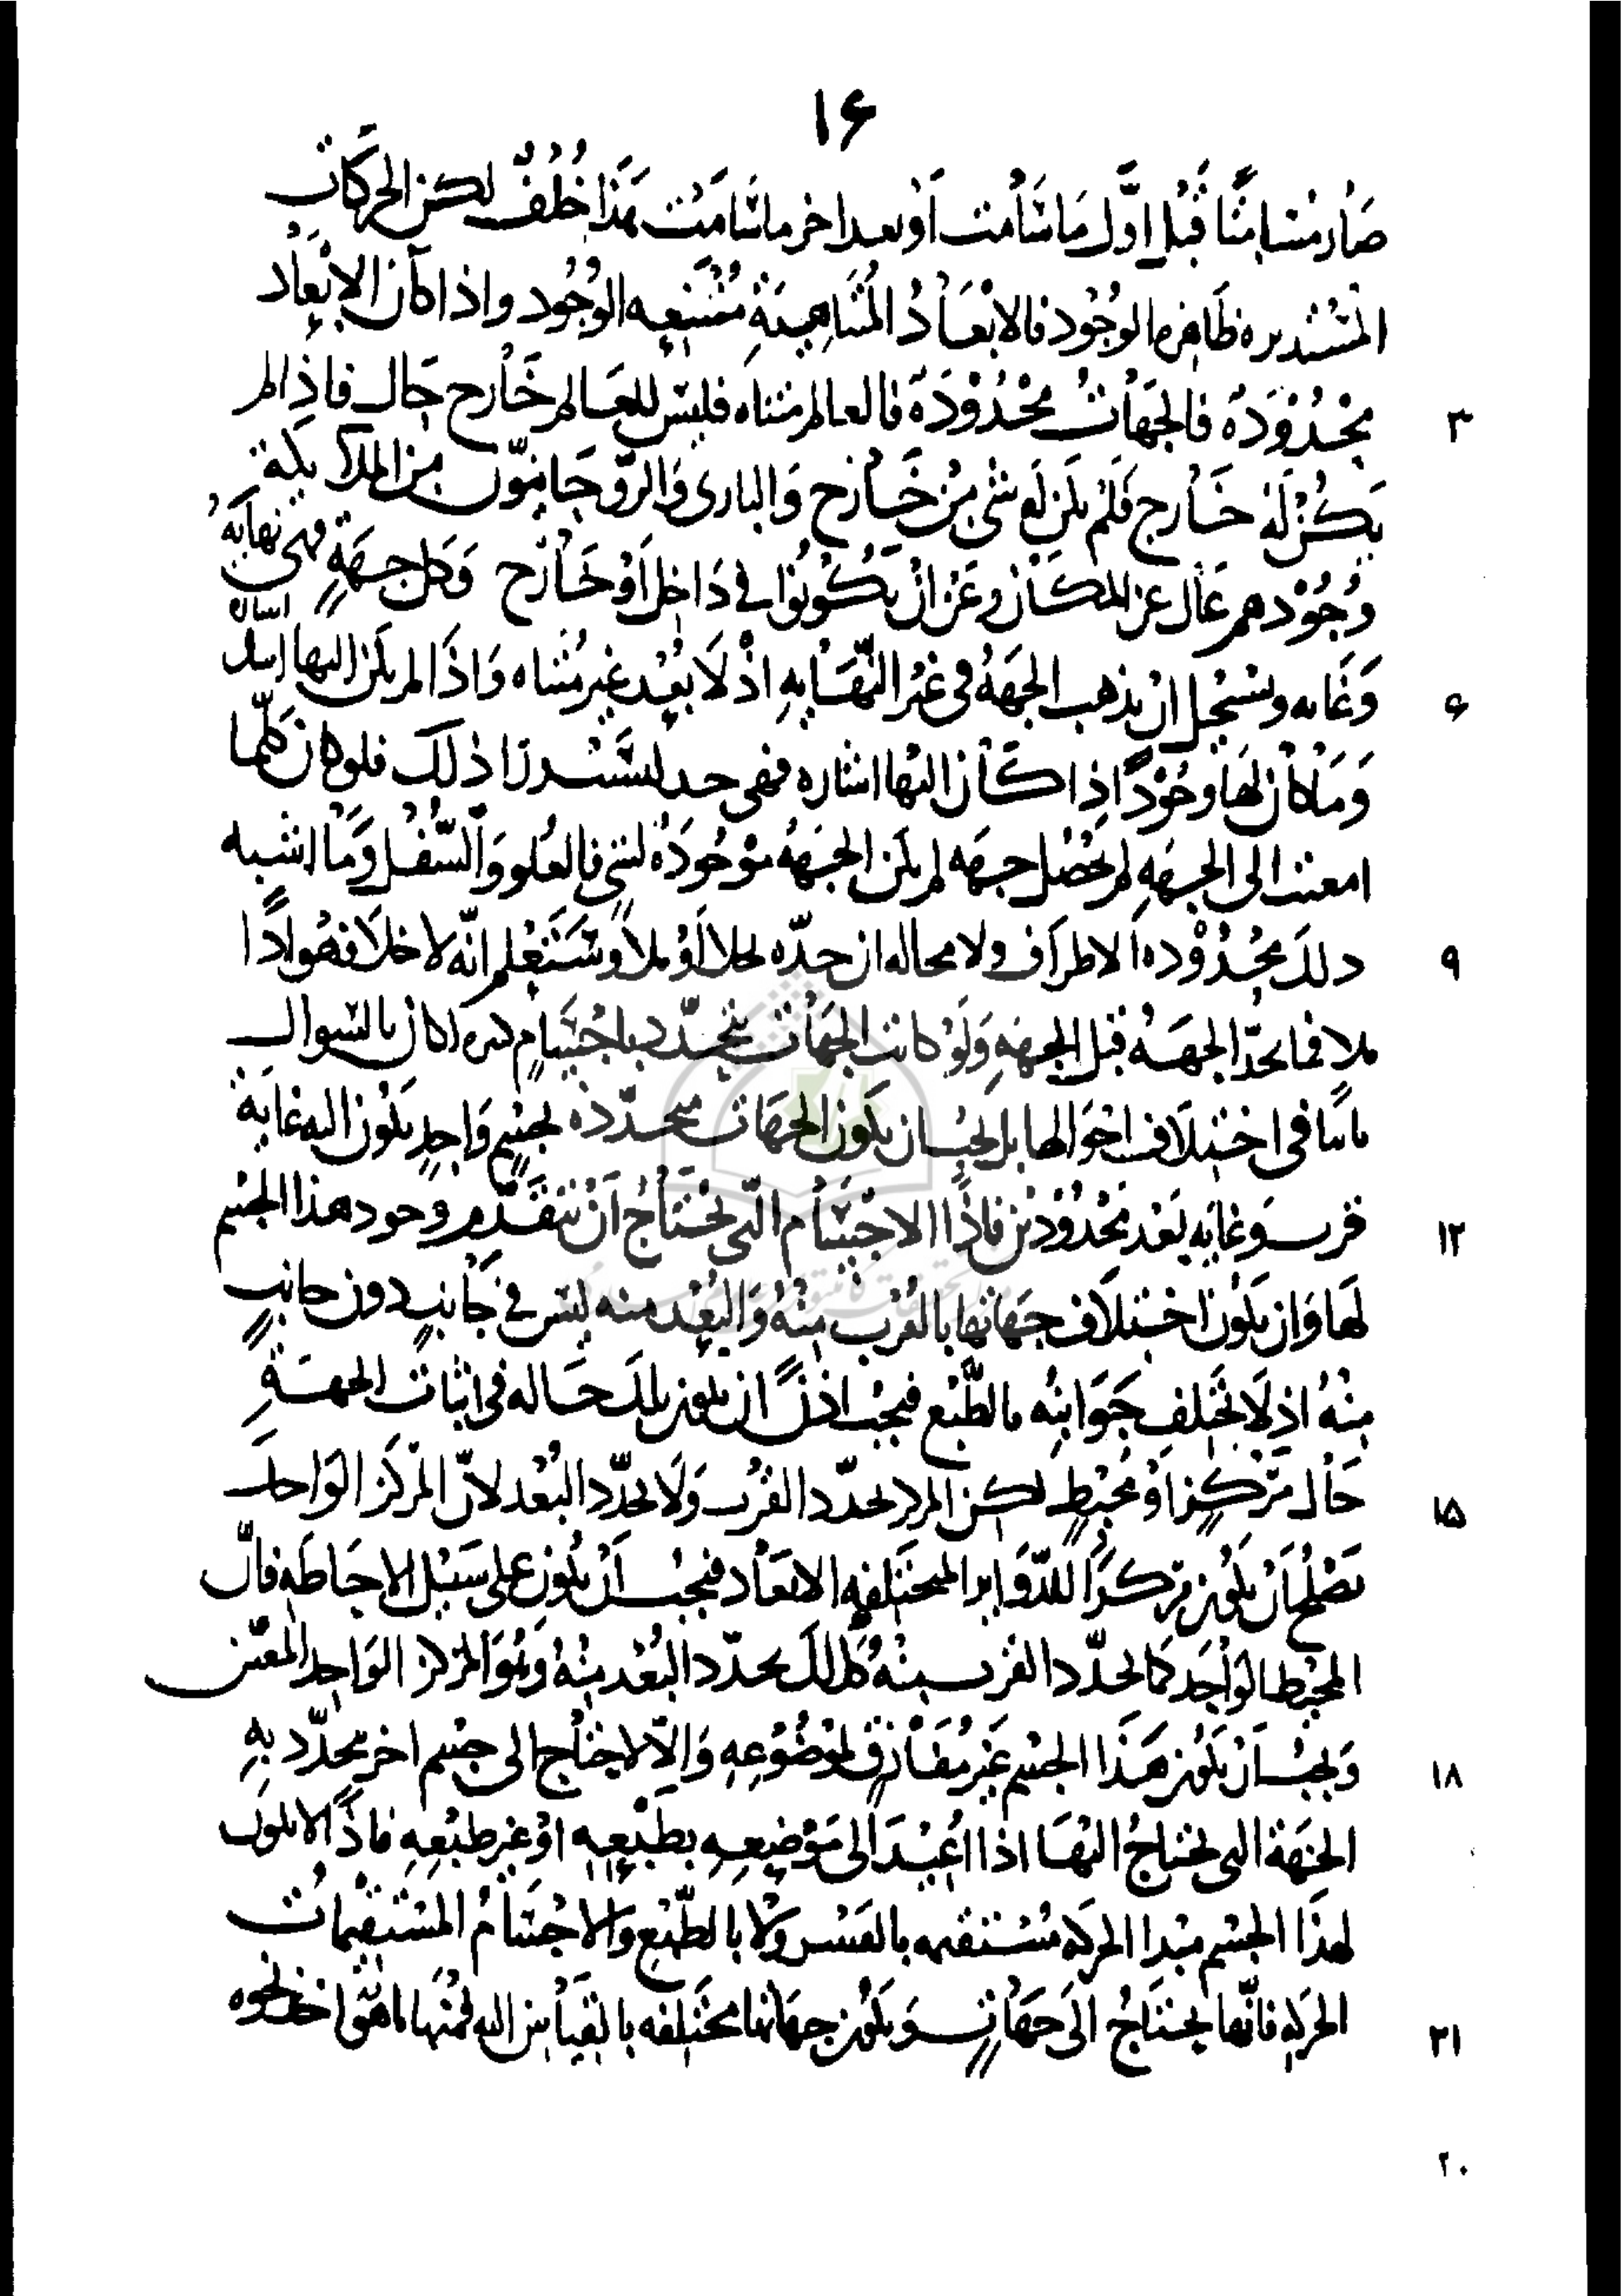 ۱۶
صار مسامتا قبل اول ما سامت او بعد اخر ما سامت هذا خلف لكن الحركات
المستديره ظاهره الوجود فالابعاد المتناهية ممتنعه الوجود واذا كان الابعاد
محدوده فالجهات محدودة فالعالم متناه فليس للعالم خارج خال فاذا لم ۳
يكن له خارج فلم يكن له شي من خارج والبارى والروحانيون من الملايكة
وجودهم عال عن المكان وعن ان يكونوا فى داخل او خارج وكل جهة فهى نهاية
وغايه ويستحيل ان يذهب الجهة فى غير النهايه اذ لا بعد غير متناه واذا لم يكن اليها اشاره ۶
وما كان لها وجود اذا كان اليها اشاره فهى حد ليس ورا ذلك فلو كان كلما
امعنت الى الجهه لم يحصل جهه لم يكن الجهة موجودة لشى فالعلو والسفل وما اشبه
ذلك محدوده الاطراف ولا محاله ان حده بخلا او ملا وستعلم انه لا خلا فهو اذا ۹
ملا فما يحد الجهة قبل الجهه ولو كانت الجهات يتحدد باجسام كثيره لكان السوال
ثابتا فى اختلاف احوالها بل يجب ان يكون الجهات متحدده بجسم واحد يكون اليه غاية
قرب وغايه بعد محدودين فاذا الاجسام التى تحتاج ان تتقدم وجود هذا الجسم ۱۲
لها وان يكون اختلاف جهاتها بالقرب منه والبعد منه ليس فى جانب دون جانب
منه اذ لا تختلف جوانبه بالطبع فيجب اذن ان يكون بذلك حاله فى اثبات الجهة
حال مركز او محيط لكن المركز يحدد القرب ولا يحدد البعد لان المركز الواحد ۱۵
يصلح ان يكون مركزا للدواير المختلفه الابعاد فيجب ان يكون على سبيل الاحاطه فان
المحيط الواحد كما يحدد القرب منه كذلك يحدد البعد منه وهو المركز الواحد المعين
ويجب ان يكون هذا الجسم غير مفارق لموضوعه والا لاحتاج الى جسم اخر تحدد به ۱۸
الجهة التى تحتاج اليها اذا اعيد الى موضعه بطبعه او غير طبعه فاذا لا يكون
لهذا الجسم مبدا الحركه مستقيمه بالقسر ولا بالطبع والاجسام المستقيمات
الحركه فانها يحتاج الى جهات ويكون جهاتها مختلفه بالقياس اليه فمنها ما هو اخذ نحوه ۲۱
۲۰